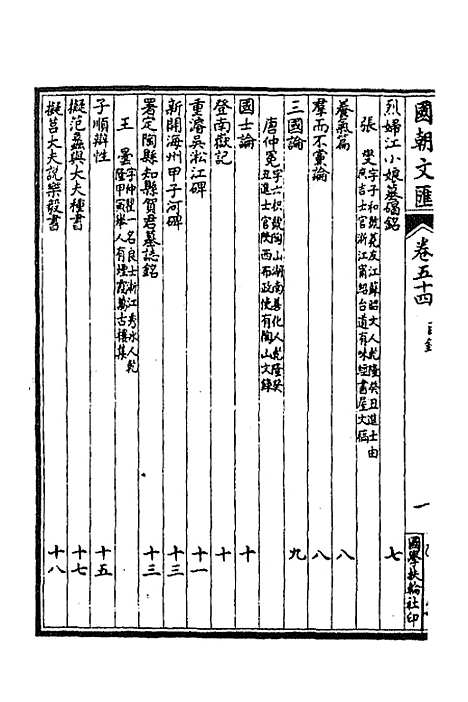 國朝文匯 卷五十四 目錄 一 國學扶輪社印
烈婦江小娘墓碣銘 七
張燮 字子和號蕘友江蘇昭文人乾隆癸丑進士由庶吉士官浙江甯紹台道有味經書屋文稿
養氣篇 八
羣而不黨論 八
三國論 九
唐仲冕 字六枳號陶山湖南善化人乾隆癸丑進士官陝西布政使有陶山文錄
國士論 十
登南嶽記 十
重濬吳淞江碑 十一
新開海州甲子河碑 十三
署定陶縣知縣賀君墓誌銘 十三
王曇 字仲瞿一名良士浙江秀水人乾隆甲寅舉人有煙霞萬古樓集
子順辯性 十五
擬范蠡與大夫種書 十七
擬莒大夫說樂毅書 十八